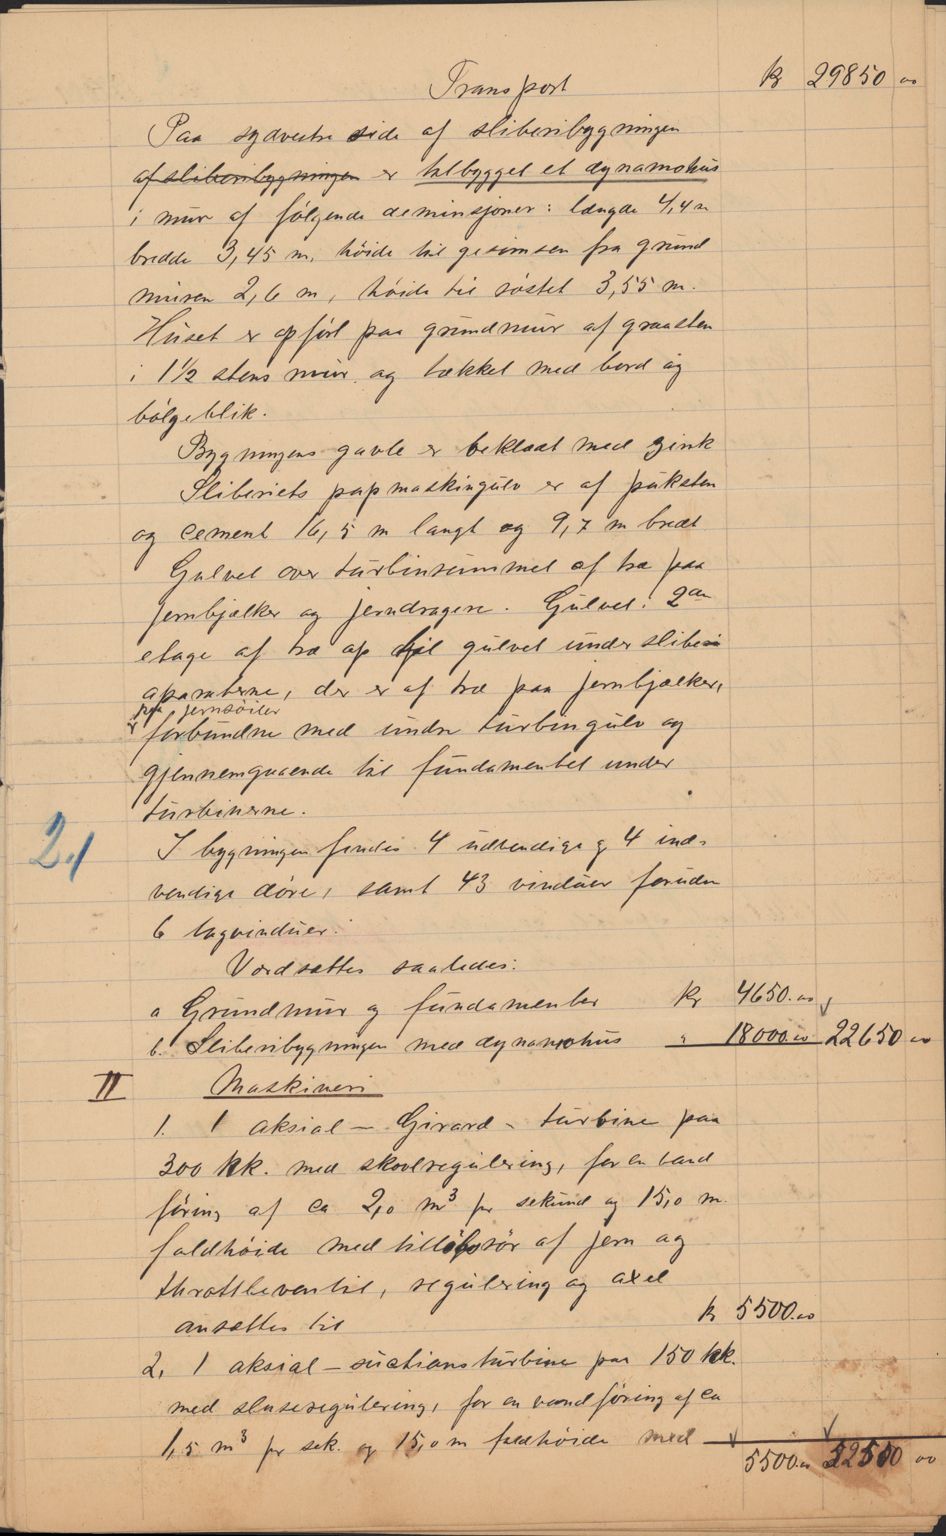 Transport kr 29850 00
Paa sydvestre side af sliberibygningen
af sliberibygningen er tilbygget et dynamohus
i mur af følgende deminsjoner: længde 4,4 m
bredde 3,45 m, høide til gesimsen fra grund
muren 2,6 m, høide til røstet 3,55 m.
Huset er opført paa grundmur af graasten
i 1½ stens mur og tækket med bord og
bølgeblik.
Bygningens gavle er beklædt med zink
Sliberiets papmaskingulv er af puksten
og cement 16,5 m langt og 9,7 m bredt
Gulvet over turbinrummet af træ paa
jernbjælker og jerndragere. Gulvet i 2den
etage af træ op til gulvet under slibe
aparaterne, der er af træ paa jernbjælker,
paa jernsøiler
er forbundne med undre turbingulv og
gjennemgaaende til fundamentet under
turbinerne.
2./ I bygningen findes 4 udvendige og 4 ind-
vendige døre, samt 43 vinduer foruden
6 tagvinduer.
Værdsættes saaledes:
a Grundmur og fundamenter kr 4650.00
b. Sliberibygningen med dynamohus " 18000.00 22650 00
II Maskineri
1. 1 aksial - Girard - turbine paa
300 hk. med skovlregulering, for en vand
føring af ca 2,0 m³ pr sekund og 15,0 m.
faldhøide med tilløbsrør af jern og
throttleventil, regulering og axel
ansættes til kr 5500.00
2. 1 aksial - suctionsturbine paa 150 hk.
med sluseregulering, for en vandføring af ca
1,5 m³ pr sek. og 15,0 m faldhøide med
5500.00 52500 00